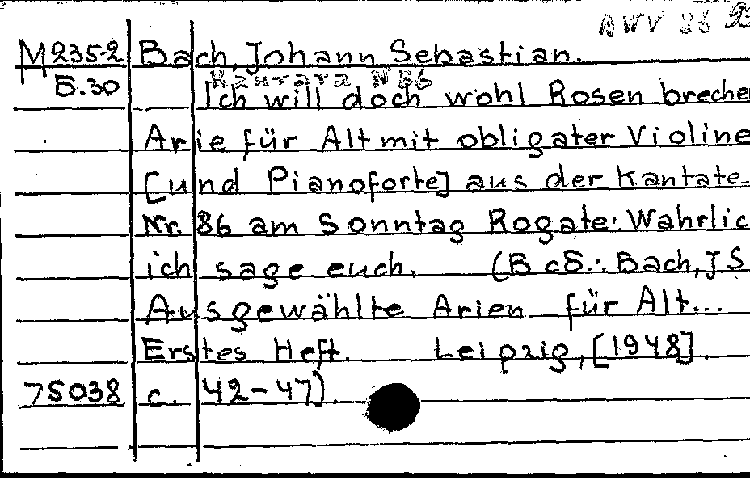 M 235-2 Bach, Johann Sebastian.
5.30
Ich will doch wohl Rosen breche
Arie für Alt mit obligater Violine
[und Pianoforte] aus der Kantate
Nr. 86 am Sonntag Rogate: Wahrlic
ich sage euch. (B cб.: Bach, J S
Ausgewählte Arien für Alt...
Erstes Heft. Leipzig, [1948].
75038 c. 42-47)